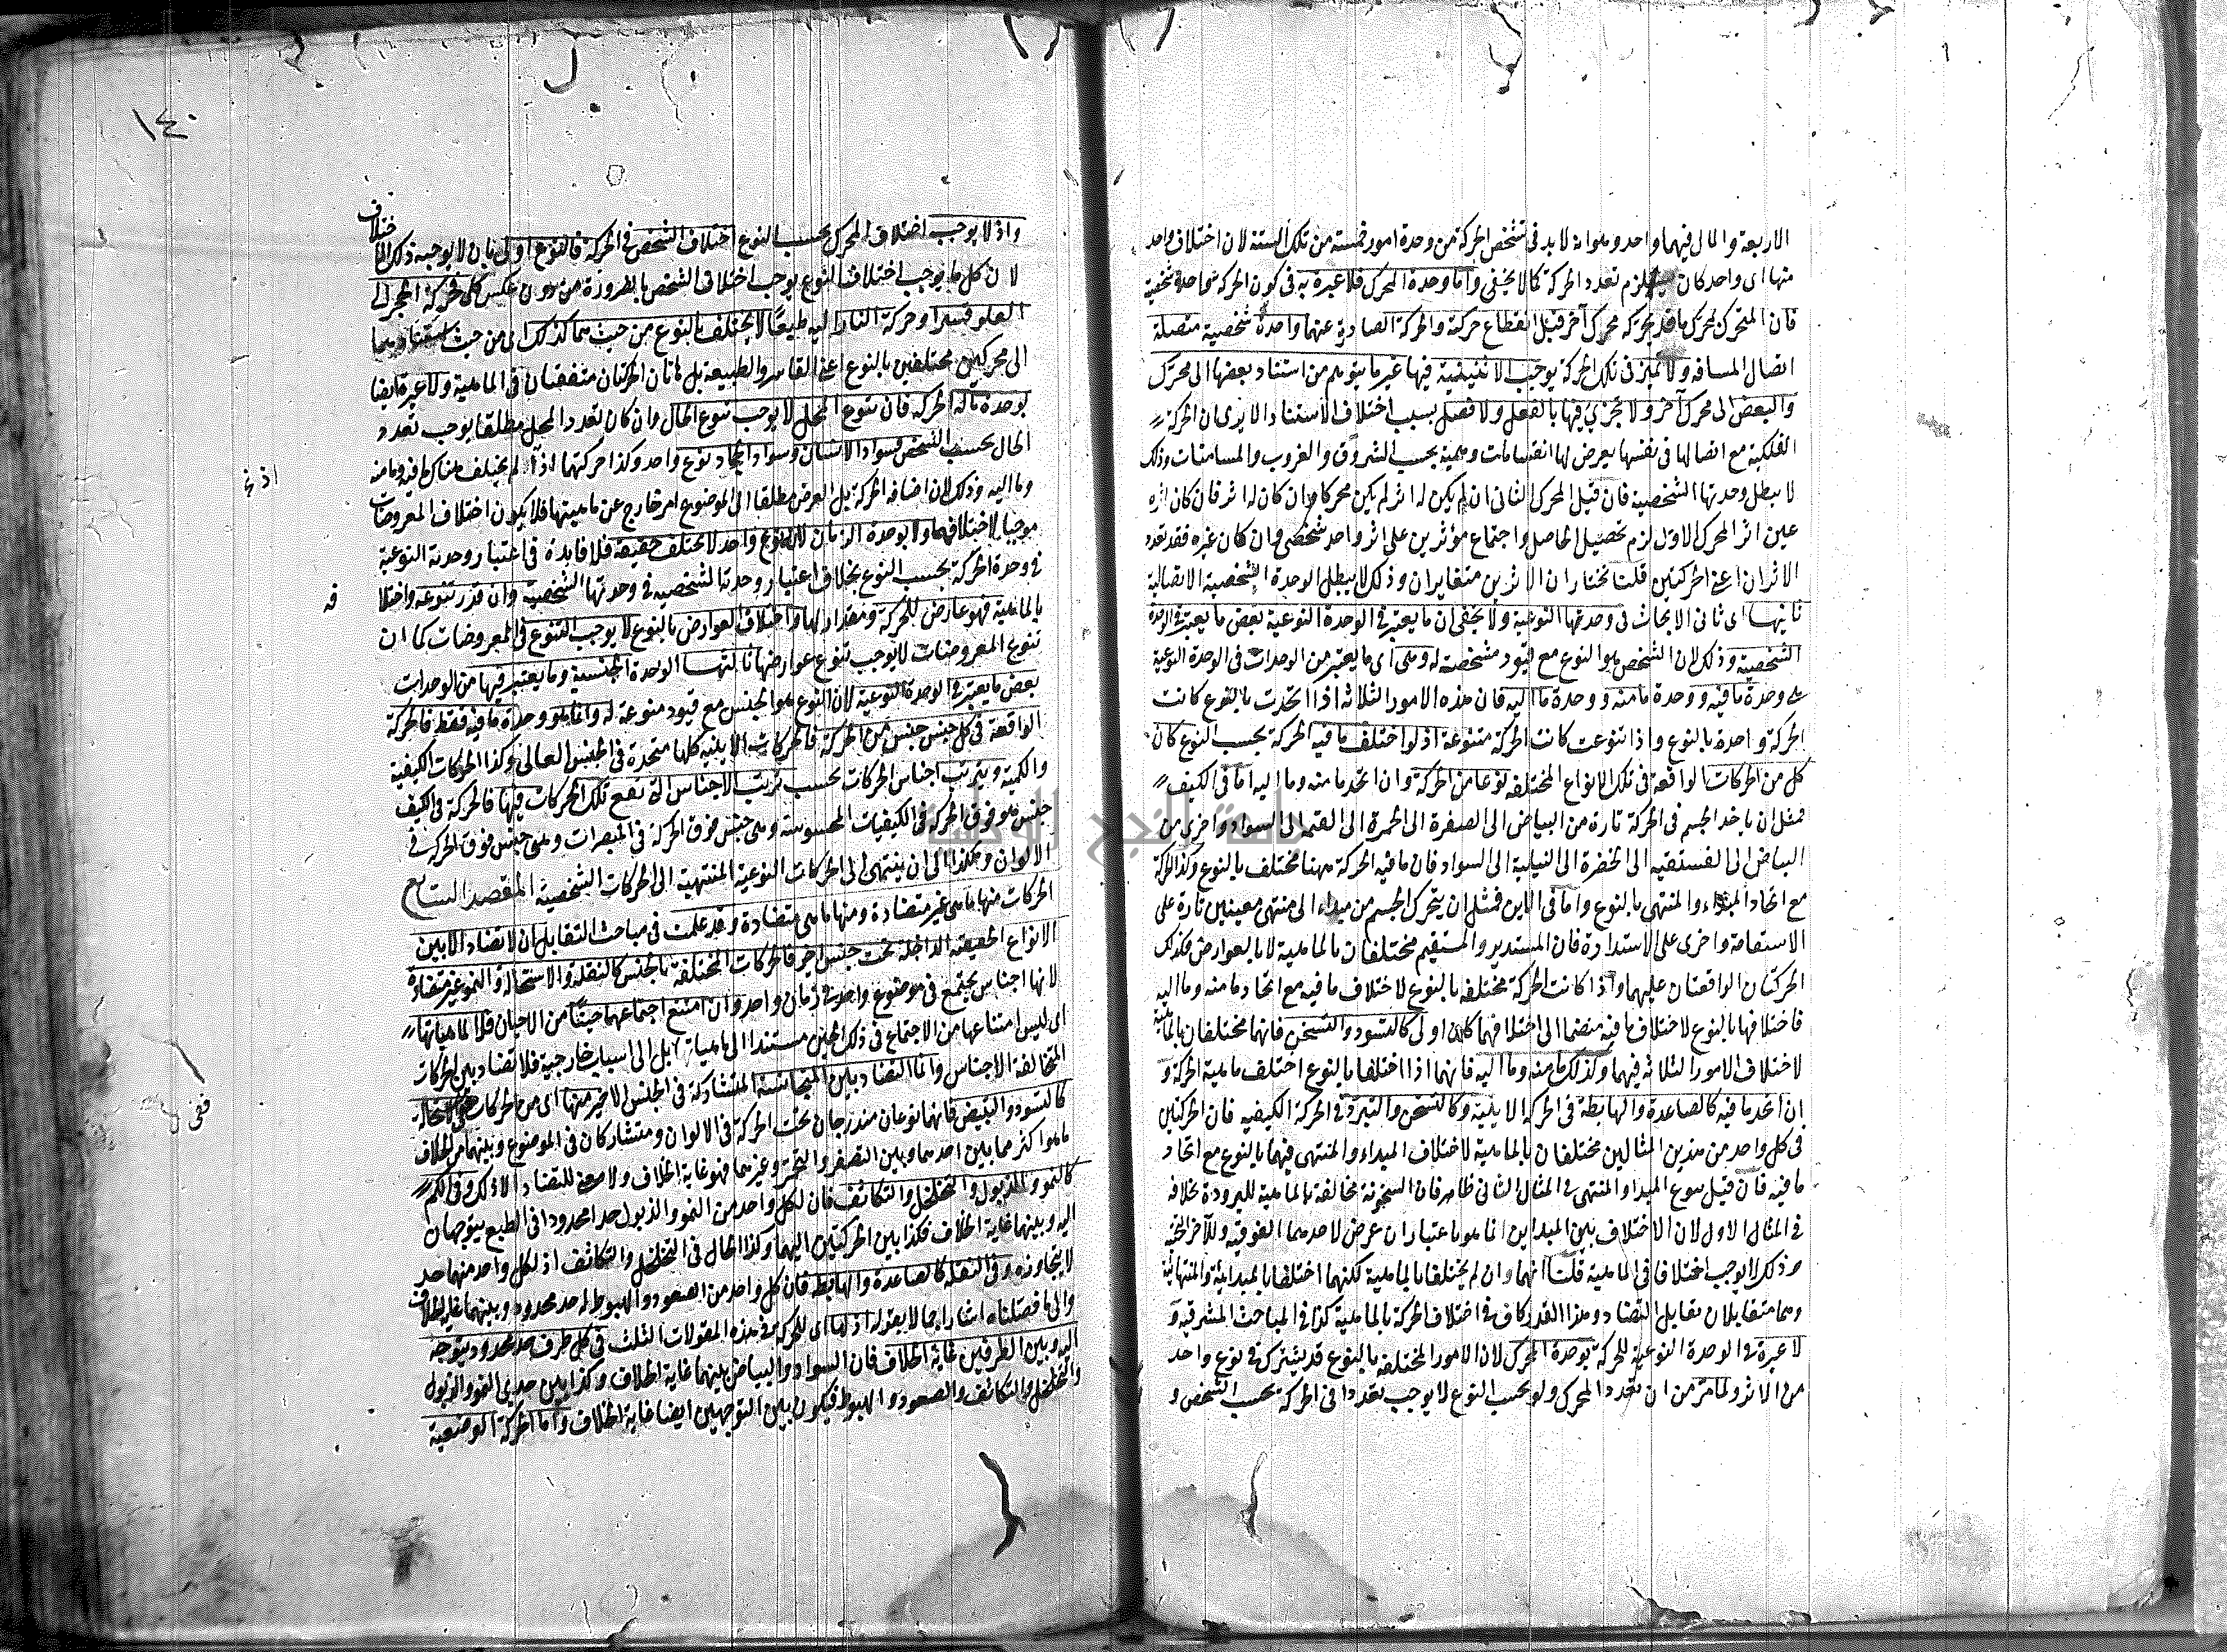 الاربعة والمال فيهما واحد وهو انه لا بد فى تشخص الحركة من وحدة امور خمسة من تلك الستة لان اختلاف واحد
منها اى واحد كان يستلزم تعدد الحركة كما لا يخفى واما وحدة المحرك فلا عبرة به فى كون الحركة واحدة شخصية
فان المتحرك بمحرك ما قد يحركه محرك آخر قبل انقطاع حركته والحركة الصادرة عنهما واحدة شخصية متصلة
اتصال المسافة ولا تميز فى تلك الحركة يوجب الاثنينية فيها غير ما يتوهم من استناد بعضها الى محرك
والبعض الى محرك آخر ولا تجزى فيها بالفعل ولا فصل بسبب اختلاف الاستناد الا يرى ان الحركة
الفلكية مع اتصالها فى نفسها يعرض لها انقسامات وهمية بحسب الشروق والغروب والمسامتات وذلك
لا يبطل وحدتها الشخصية فان قيل المحرك الثانى ان لم يكن له اثر لم يكن محركا وان كان له اثر فان كان اثره
عين اثر المحرك الاول لزم تحصيل الحاصل واجتماع مؤثرين على اثر واحد شخصى وان كان غيره فقد تعدد
الاثران اعنى الحركتين قلنا نختار ان الاثرين متغايران وذلك لا يبطل الوحدة الشخصية الاتصالية
ثانيها اى ثانى الابحاث فى وحدتها النوعية ولا يخفى ان ما يعتبر فى الوحدة النوعية بعض ما يعتبر فى الوحدة
الشخصية وذلك لان الشخص هو النوع مع قيود مشخصة له وهى اى ما يعتبر من الوحدات فى الوحدة النوعية
وحدة ما فيه ووحدة ما منه ووحدة ما اليه فان هذه الامور الثلاثة اذا اتحدت بالنوع كانت
الحركة واحدة بالنوع واذا تنوعت كانت الحركة متنوعة اذ لو اختلف ما فيه الحركة بحسب النوع كان
كل من الحركات الواقعة فى تلك الانواع المختلفة نوعا من الحركة وان اتحد ما منه وما اليه اما فى الكيف
فمثل ان ياخذ الجسم فى الحركة تارة من البياض الى الصفرة الى الحمرة الى القتمة الى السواد واخرى من
البياض الى الفستقية الى الخضرة الى النيلية الى السواد فان ما فيه الحركة ههنا مختلف بالنوع وكذا الحركة
مع اتحاد المبداء والمنتهى بالنوع واما فى الاين فمثل ان يتحرك الجسم من مبداء الى منتهى معينين تارة على
الاستقامة واخرى على الاستدارة فان المستدير والمستقيم مختلفان بالماهية لا بالعوارض فكذلك
الحركتان الواقعتان عليهما واذا كانت الحركة مختلفة بالنوع لاختلاف ما فيه مع اتحاد ما منه وما اليه
فاختلافها بالنوع لاختلاف ما فيه منضما الى اختلافهما كان اولى كالتسود والتسخن فانهما مختلفان بالماهية
لاختلاف الامور الثلاثة فيهما وكذلك ما منه وما اليه فانهما اذا اختلفا بالنوع اختلف ماهية الحركة و
ان اتحد ما فيه كالصاعدة والهابطة فى الحركة الاينية وكالتسخن والتبرد فى الحركة الكيفية فان الحركتين
فى كل واحد من هذين المثالين مختلفان بالماهية لاختلاف المبداء والمنتهى فيهما بالنوع مع اتحاد
ما فيه فان قيل تنوع المبدا والمنتهى فى المثال الثانى ظاهر فان السخونة مخالفة بالماهية للبرودة بخلافه
فى المثال الاول لان الاختلاف بين المبداين انما هو باعتبار ان عرض لاحدهما الفوقية وللآخر التحتية
وذلك لا يوجب اختلافا فى الماهية قلنا انهما وان لم يختلفا بالماهية لكنهما اختلفا بالمبدائية والمنتهائية
وهما متقابلان تقابل التضاد وهذا القدر كاف فى اختلاف الحركة بالماهية كذا فى المباحث المشرقية و
لا عبرة فى الوحدة النوعية للحركة بوحدة المحرك لان الامور المختلفة بالنوع قد يشترك فى نوع واحد
من الاثر ولما مر من ان تعدد المحرك ولو بحسب النوع لا يوجب تعددا فى الحركة بحسب الشخص و
١٤٠
واذ لا يوجب اختلاف المحرك بحسب النوع اختلاف الشخص فى الحركة فالنوع اولى بان لا يوجبه ذلك الاختلاف
لان كل ما يوجب اختلاف النوع يوجب اختلاف الشخص بالضرورة من دون عكس كلى فحركة الحجر الى
العلو قسرا وحركة النار اليه طبعا لا يختلف بالنوع من حيث هما كذلك اى من حيث استنادهما
الى محركين مختلفين بالنوع اعنى القاسر والطبيعة بل هاتان الحركتان متفقتان فى الماهية ولا عبرة ايضا
بوحدة ما له الحركة فان تنوع المحل لا يوجب تنوع الحال وان كان تعدد المحل مطلقا يوجب تعدد
الحال بحسب الشخص فسواد الانسان وسواد الحمار نوع واحد وكذا حركتهما اذا لم يختلف هناك ما فيه وما منه
وما اليه وذلك لان اضافة الحركة بل العرض مطلقا الى الموضوع امر خارج عن ماهيتها فلا يكون اختلاف المعروضات
موجبا لاختلافهما ولا بوحدة الزمان لانه نوع واحد لا يختلف حقيقة فلا فايدة فى اعتبار وحدته النوعية
فى وحدة الحركة بحسب النوع بخلاف اعتبار وحدتها الشخصية فى وحدتها الشخصية وان قدر تنوعه واختلا
فه
بالماهية فهو عارض للحركة ومقدار لها واختلاف العوارض بالنوع لا يوجب التنوع فى المعروضات كما ان
تنوع المعروضات لا يوجب تنوع عوارضها ثالثها الوحدة الجنسية وما يعتبر فيها من الوحدات
بعض ما يعتبر فى الوحدة النوعية لان النوع هو الجنس مع قيود منوعة له وانما هو وحدة ما فيه فقط فالحركة
الواقعة فى كل جنس جنس من الحركة فالحركات الاينية كلها متحدة فى الجنس العالى وكذا الحركات الكيفية
والكمية ويترتب اجناس الحركات بحسب ترتب الاجناس التى تقع تلك الحركات فيها فالحركة فى الكيف
جنس هو فوق الحركة فى الكيفيات المحسوسة وهى جنس فوق الحركة فى المبصرات وهى جنس فوق الحركة فى
الالوان وهكذا الى ان ينتهى الى الحركات النوعية المنتهية الى الحركات الشخصية المقصد السابع
الحركات منها ما هى غير متضادة ومنها ما هى متضادة وقد علمت فى مباحث التقابل ان لا تضاد الا بين
الانواع الحقيقية الداخلة تحت جنس اخير فالحركات المختلفة بالجنس كالنقلة والاستحالة والنمو غير متضادة
لانها اجناس يجتمع فى موضوع واحد فى زمان واحد وان امتنع اجتماعهما حينا من الاحيان فلا لماهياتها
اى ليس امتناعها من الاجتماع فى ذلك الحين مستندا الى ماهياتها بل الى اسباب خارجية فلا تضاد بين الحركات
المتخالفة الاجناس وانما التضاد بين المتجانسة المتشاركة فى الجنس الاخير منها اى من الحركات ففى الاستحالة
كالتسود والتبيض فانهما نوعان مندرجان تحت الحركة فى الالوان ومتشاركان فى الموضوع وبينهما من الخلاف
ما هو اكثر مما بين احدهما وبين التصفر والتحمر وغيرهما فهو غاية الخلاف ولا معنى للتضاد الا ذلك وفى الكم
كالنمو والذبول والتخلخل والتكاثف فان لكل واحد من النمو والذبول حدا محدودا فى الطبع يتوجهان
اليه وبينهما غاية الخلاف فكذا بين الحركتين اليهما وكذا الحال فى التخلخل والتكاثف اذ لكل واحد منهما حد
لا يتجاوزه وفى النقلة كالصاعدة والهابطة فان كل واحد من الصعود والهبوط له حد محدود وبينهما غاية الخلاف
والى ما فصلناه اشار اجمالا بقوله اذ لها اى للحركة فى هذه المقولات الثلث فى كل طرف حد محدود يتوجه
اليه وبين الطرفين غاية الخلاف فان السواد والبياض بينهما غاية الخلاف وكذا بين حدى النمو والذبول
والتخلخل والتكاثف والصعود والهبوط فيكون بين التوجهين ايضا غاية الخلاف واما الحركة الوضعية
جامعة النجاح الوطنية